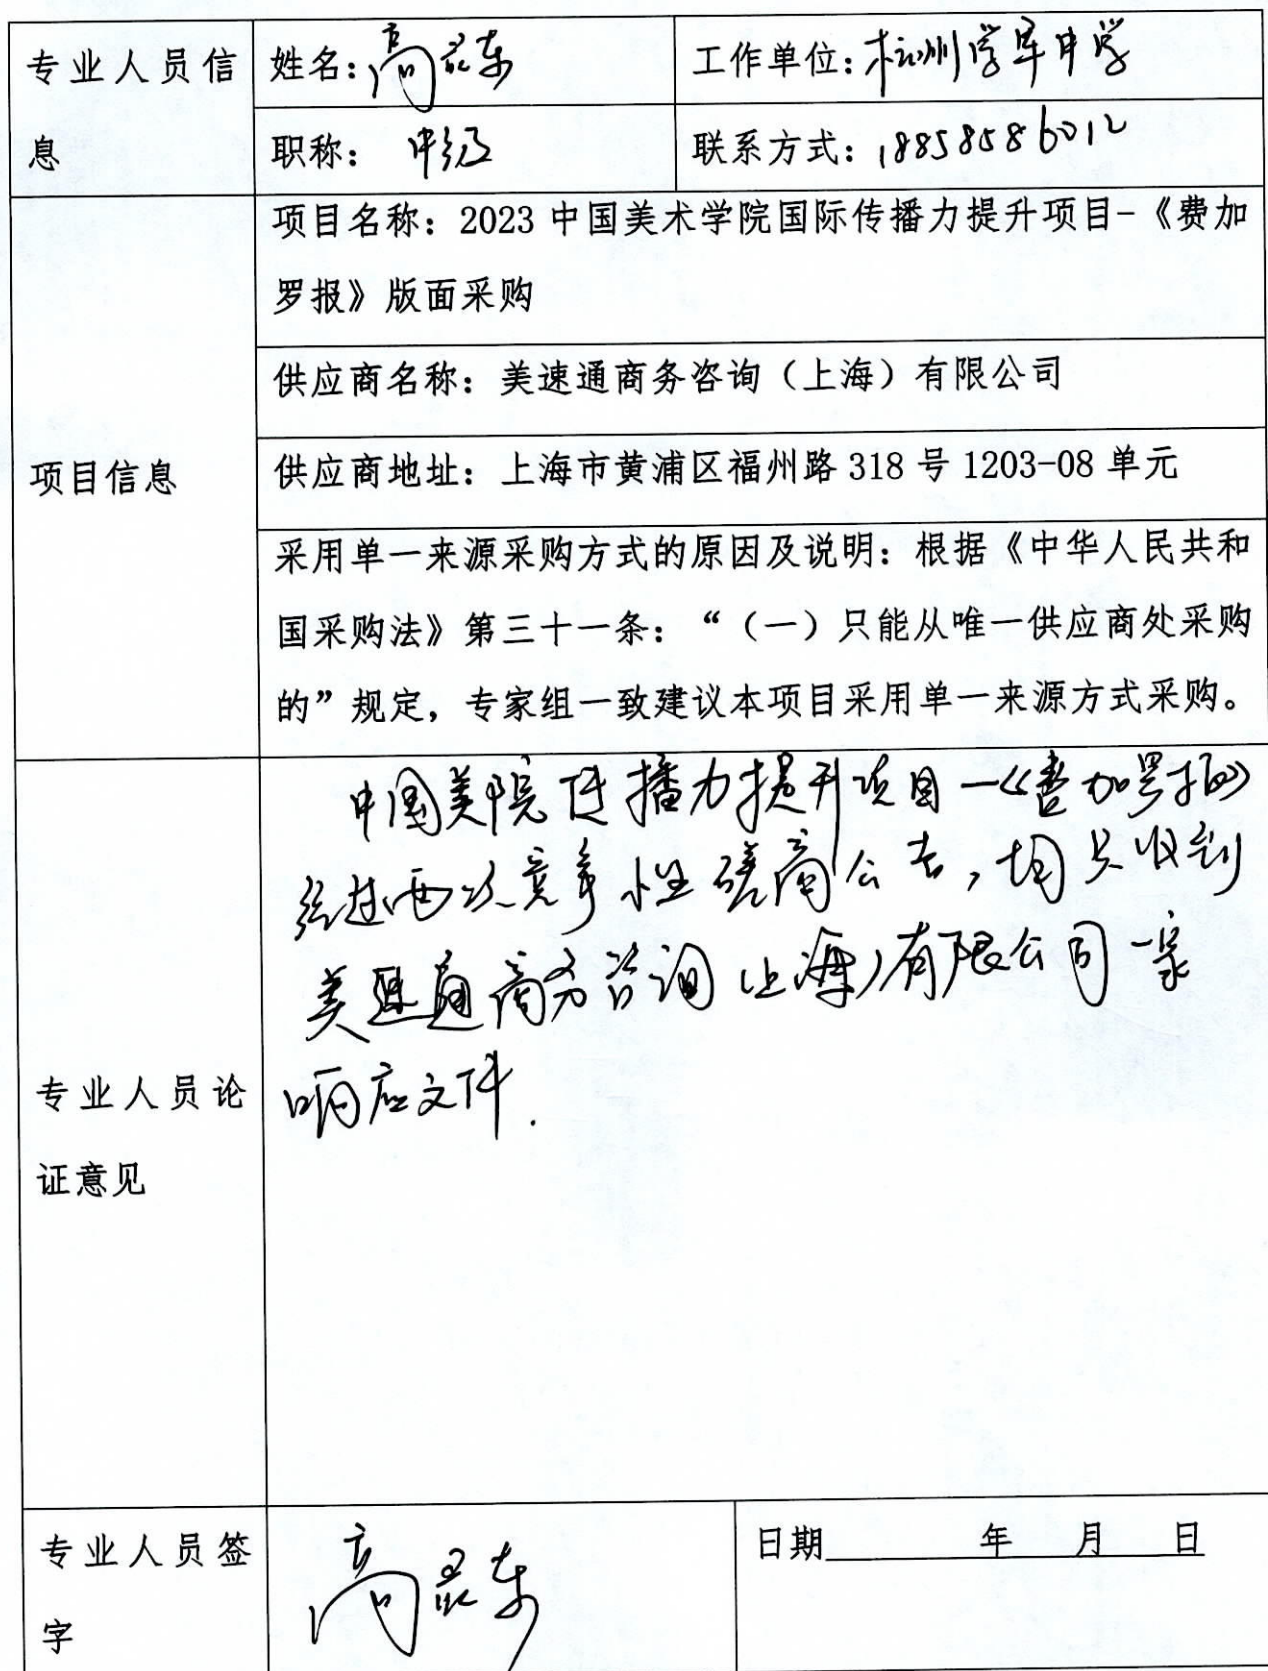 专业人员信
息
姓名:高
工作单位:杭州学军中学
职称: 中级
联系方式:18858586012
项目信息
项目名称:2023 中国美术学院国际传播力提升项目-《费加
罗报》版面采购
供应商名称:美速通商务咨询(上海)有限公司
供应商地址:上海市黄浦区福州路 318 号 1203-08 单元
采用单一来源采购方式的原因及说明:根据《中华人民共和
国采购法》第三十一条:“(一)只能从唯一供应商处采购
的”规定,专家组一致建议本项目采用单一来源方式采购。
专业人员论
证意见
中国美院传播力提升项目—《费加罗报》
经过两次竞争性磋商公告,均只收到
美速通商务咨询(上海)有限公司一家
响应文件.
专业人员签
字
高
日期 年 月 日